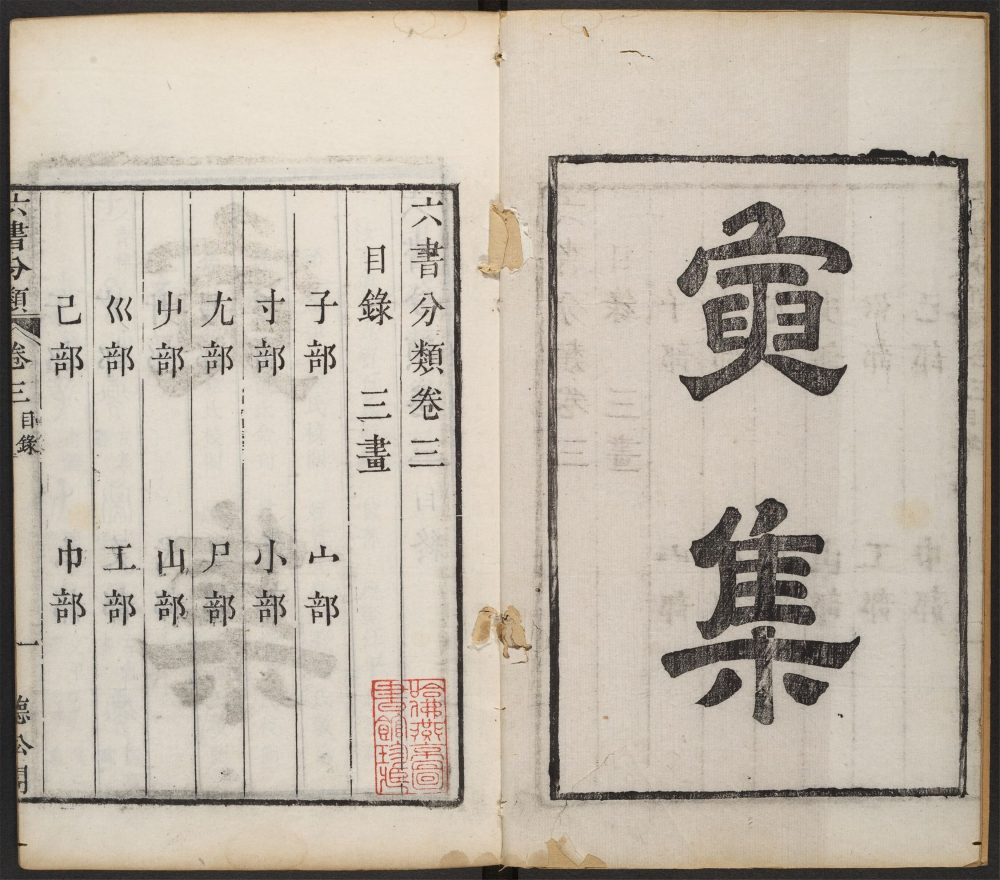 寅集
六書分類卷三
目錄 三畫
子部 宀部
寸部 小部
尢部 尸部
屮部 山部
巛部 工部
己部 巾部
六書分類 卷三 目錄 一
哈佛燕京圖
書館珍藏